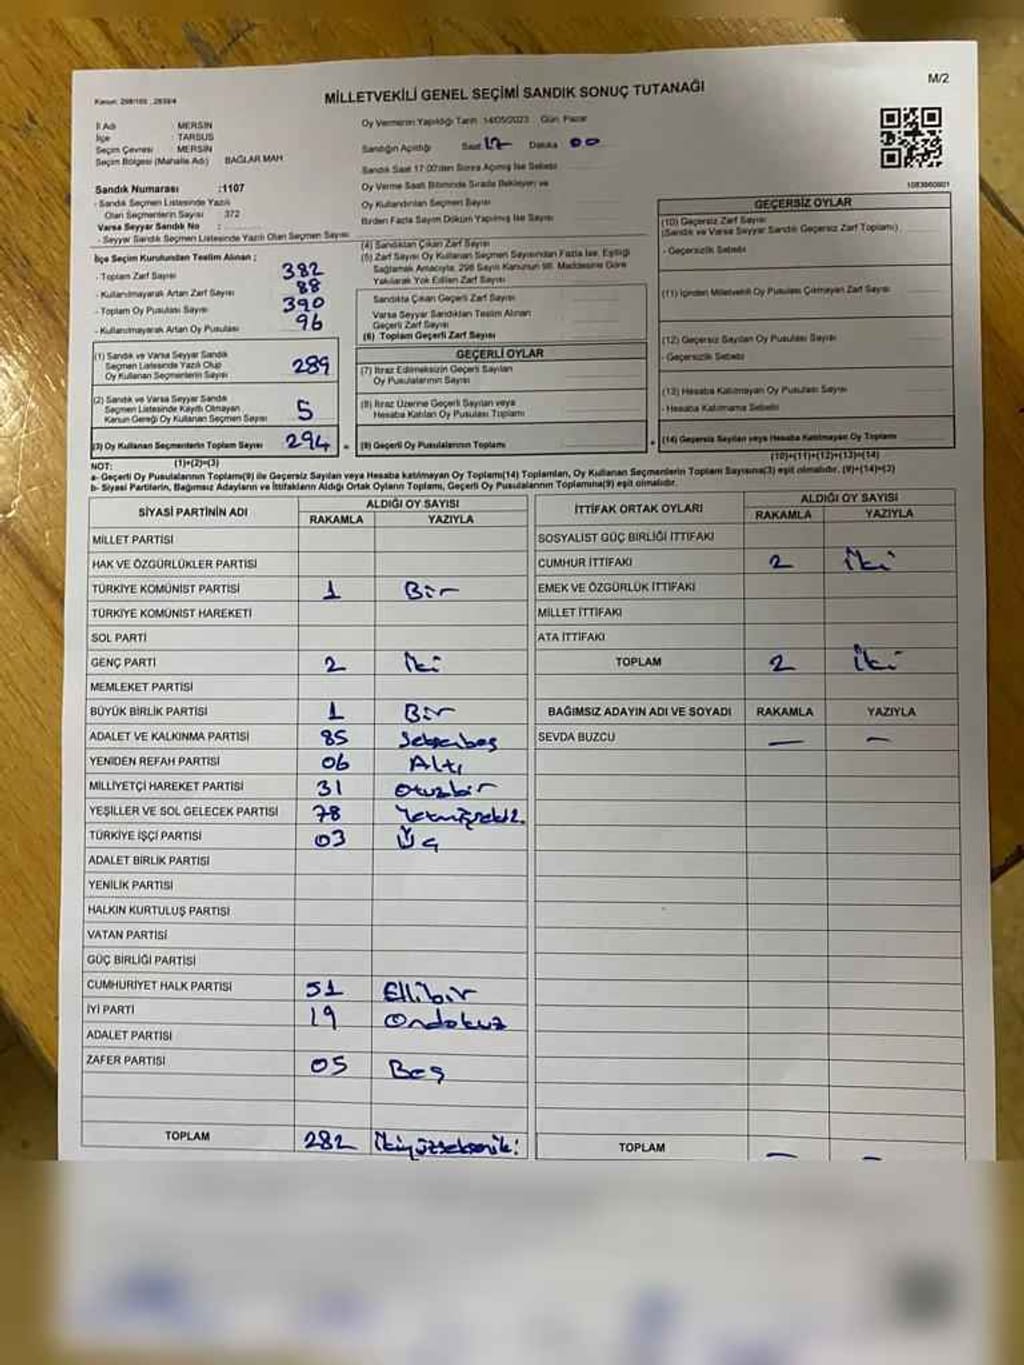 M/2
Kanun: 298/105 , 2839/4
MİLLETVEKİLİ GENEL SEÇİMİ SANDIK SONUÇ TUTANAĞI
İl Adı : MERSİN
İlçe : TARSUS
Seçim Çevresi : MERSİN
Seçim Bölgesi (Mahalle Adı) BAĞLAR MAH
Sandık Numarası :1107
- Sandık Seçmen Listesinde Yazılı
Olan Seçmenlerin Sayısı 372
Varsa Seyyar Sandık No :
- Seyyar Sandık Seçmen Listesinde Yazılı Olan Seçmen Sayısı
Oy Vermenin Yapıldığı Tarih 14/05/2023 Gün Pazar
Sandığın Açıldığı Saat 17 Dakika 00
Sandık Saat 17:00'den Sonra Açılmış İse Sebebi
Oy Verme Saati Bitiminde Sırada Bekleyen ve
Oy Kullandırılan Seçmen Sayısı
Birden Fazla Sayım Döküm Yapılmış İse Sayısı
1083960801
İlçe Seçim Kurulundan Teslim Alınan ;
- Toplam Zarf Sayısı 382
- Kullanılmayarak Artan Zarf Sayısı 88
- Toplam Oy Pusulası Sayısı 390
- Kullanılmayarak Artan Oy Pusulası 96
(1) Sandık ve Varsa Seyyar Sandık
Seçmen Listesinde Yazılı Olup
Oy Kullanan Seçmenlerin Sayısı 289
(2) Sandık ve Varsa Seyyar Sandık
Seçmen Listesinde Kayıtlı Olmayan
Kanun Gereği Oy Kullanan Seçmen Sayısı 5
(3) Oy Kullanan Seçmenlerin Toplam Sayısı 294 =
(1)+(2)=(3)
(4) Sandıktan Çıkan Zarf Sayısı
(5) Zarf Sayısı Oy Kullanan Seçmen Sayısından Fazla İse, Eşitliği
Sağlamak Amacıyla, 298 Sayılı Kanunun 98. Maddesine Göre
Yakılarak Yok Edilen Zarf Sayısı
Sandıkta Çıkan Geçerli Zarf Sayısı
Varsa Seyyar Sandıktan Teslim Alınan
Geçerli Zarf Sayısı
(6) Toplam Geçerli Zarf Sayısı
GEÇERLİ OYLAR
(7) İtiraz Edilmeksizin Geçerli Sayılan
Oy Pusulalarının Sayısı
(8) İtiraz Üzerine Geçerli Sayılan veya
Hesaba Katılan Oy Pusulası Toplamı
(9) Geçerli Oy Pusulalarının Toplamı +
GEÇERSİZ OYLAR
(10) Geçersiz Zarf Sayısı
(Sandık ve Varsa Seyyar Sandık Geçersiz Zarf Toplamı)
- Geçersizlik Sebebi
(11) İçinden Milletvekili Oy Pusulası Çıkmayan Zarf Sayısı
(12) Geçersiz Sayılan Oy Pusulası Sayısı
- Geçersizlik Sebebi
(13) Hesaba Katılmayan Oy Pusulası Sayısı
- Hesaba Katılmama Sebebi
(14) Geçersiz Sayılan veya Hesaba Katılmayan Oy Toplamı
(10)+(11)+(12)+(13)=(14)
NOT:
a- Geçerli Oy Pusulalarının Toplamı(9) ile Geçersiz Sayılan veya Hesaba katılmayan Oy Toplamı(14) Toplamları, Oy Kullanan Seçmenlerin Toplam Sayısına(3) eşit olmalıdır. (9)+(14)=(3)
b- Siyasi Partilerin, Bağımsız Adayların ve İttifakların Aldığı Ortak Oyların Toplamı, Geçerli Oy Pusulalarının Toplamına(9) eşit olmalıdır.
SİYASİ PARTİNİN ADI ALDIĞI OY SAYISI
RAKAMLA YAZIYLA
MİLLET PARTİSİ
HAK VE ÖZGÜRLÜKLER PARTİSİ
TÜRKİYE KOMÜNİST PARTİSİ 1 Bir
TÜRKİYE KOMÜNİST HAREKETİ
SOL PARTİ
GENÇ PARTİ 2 İki
MEMLEKET PARTİSİ
BÜYÜK BİRLİK PARTİSİ 1 Bir
ADALET VE KALKINMA PARTİSİ 85 Seksenbeş
YENİDEN REFAH PARTİSİ 06 Altı
MİLLİYETÇİ HAREKET PARTİSİ 31 Otuzbir
YEŞİLLER VE SOL GELECEK PARTİSİ 78 Yetmişsekiz
TÜRKİYE İŞÇİ PARTİSİ 03 Üç
ADALET BİRLİK PARTİSİ
YENİLİK PARTİSİ
HALKIN KURTULUŞ PARTİSİ
VATAN PARTİSİ
GÜÇ BİRLİĞİ PARTİSİ
CUMHURİYET HALK PARTİSİ 51 Ellibir
İYİ PARTİ 19 Ondokuz
ADALET PARTİSİ
ZAFER PARTİSİ 05 Beş
TOPLAM 282 İkiyüzseksenik!
İTTİFAK ORTAK OYLARI ALDIĞI OY SAYISI
RAKAMLA YAZIYLA
SOSYALİST GÜÇ BİRLİĞİ İTTİFAKI
CUMHUR İTTİFAKI 2 İki
EMEK VE ÖZGÜRLÜK İTTİFAKI
MİLLET İTTİFAKI
ATA İTTİFAKI
TOPLAM 2 İki
BAĞIMSIZ ADAYIN ADI VE SOYADI RAKAMLA YAZIYLA
SEVDA BUZCU — —
TOPLAM — —